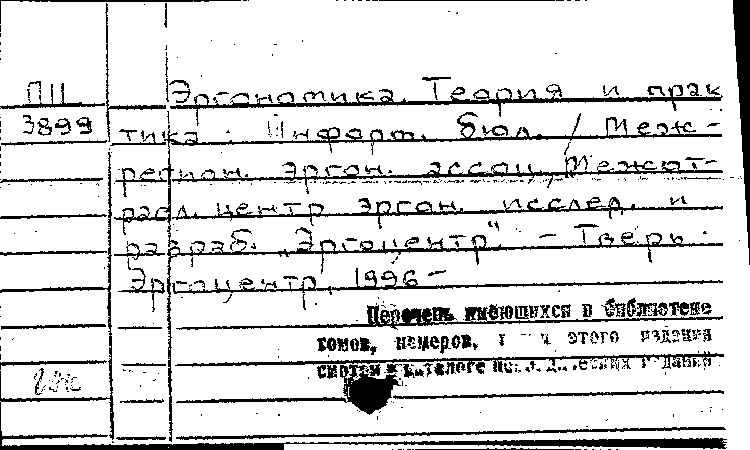 П11 Эргономика. Теория и прак
3899 тика: Информ. бюл. / Меж-
регион. эргон. ассоц., Межот-
расл. центр эргон. исслед. и
разраб. "Эргоцентр" - Тверь:
Эргоцентр, 1996 -
Перечень имеющихся в библиотеке
томов, номеров, этого издания
смотри в каталоге изданий